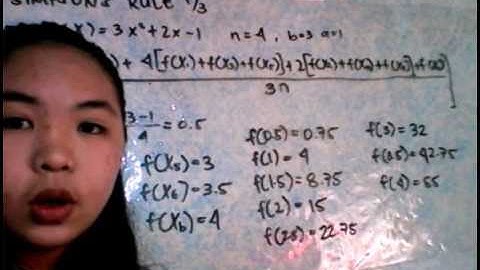 SIMPSON'S RULE 1/3
(X) = 3x² + 2x - 1 n = 4 , b = 3 a = 1
) + 4[f(X₁) + f(X₃) + f(X₅)] + 2[f(X₂) + f(X₄) + f(X₆)] + f(X)
3n
3-1/4 = 0.5
f(X₅) = 3
f(X₆) = 3.5
f(X_b) = 4
f(0.5) = 0.75
f(1) = 4
f(1.5) = 8.75
f(2) = 15
f(2.5) = 22.75
f(3) = 32
f(3.5) = 42.75
f(4) = 55